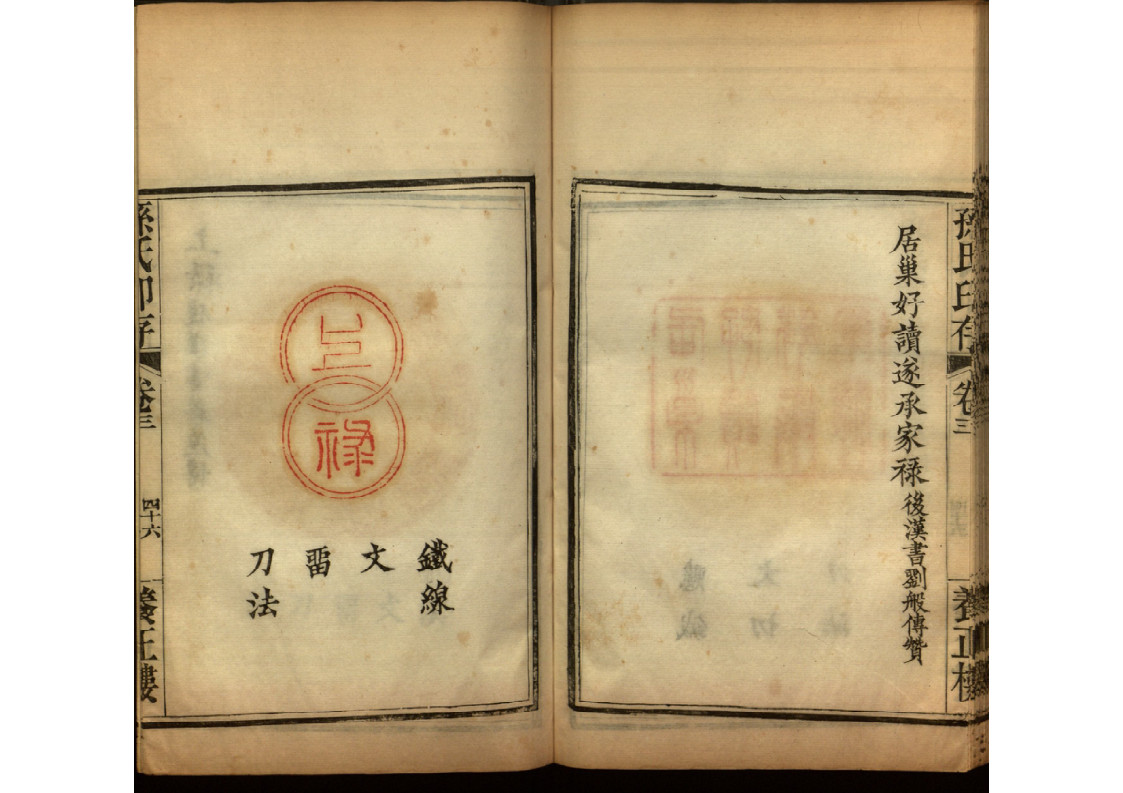 孫氏印存 卷三 養正樓
居巢好讀遂承家禄 後漢書劉般傳贊
上
禄
鐵線
文
畱
刀法
孫氏印存 卷三 四十六 養正樓